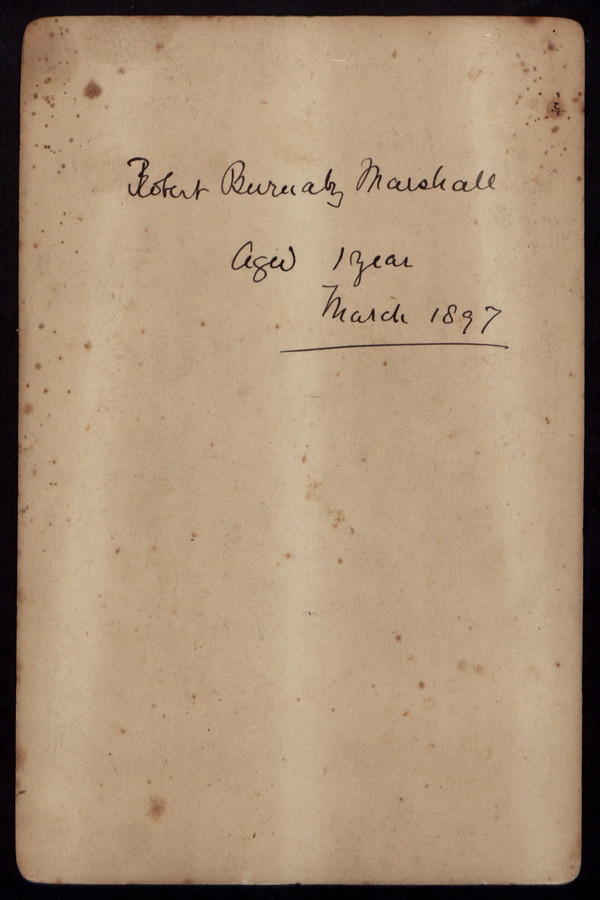 Robert Burnaby Marshall
Aged 1 year
March 1897